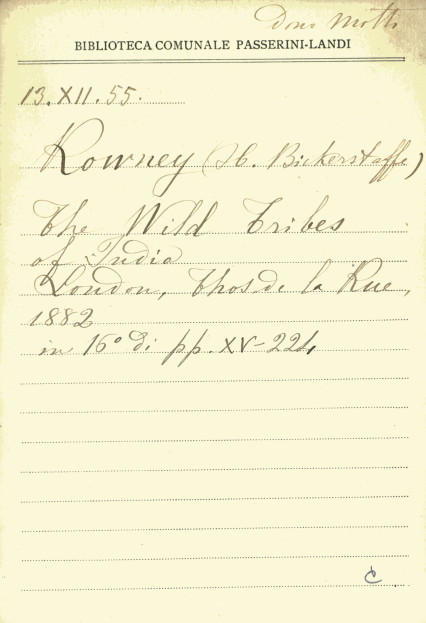 Dono Motti
BIBLIOTECA COMUNALE PASSERINI-LANDI
13.XII.55.
Rowney (H. Bickerstaffe)
The Wild Tribes
of India
London, Thos de la Rue,
1882
in 16° di pp. XV-224
C